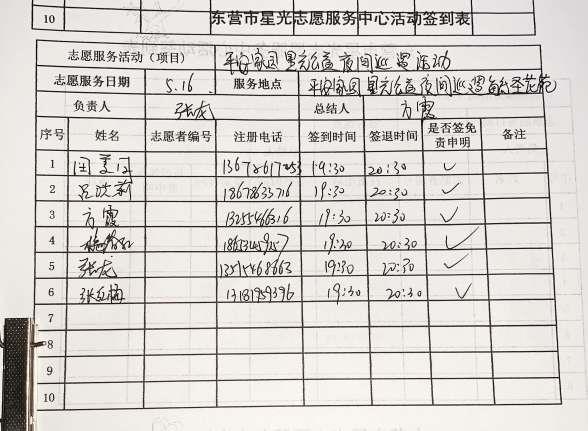 10
东营市星光志愿服务中心活动签到表
志愿服务活动（项目） 平安家园 星光公益 夜间巡逻活动
志愿服务日期 5.16 服务地点 平安家园 星光公益 夜间巡逻
负责人 张龙 总结人 方霞
序号 姓名 志愿者编号 注册电话 签到时间 签退时间 是否签免责申明 备注
1 19:30 20:30 ✓
2 18678633716 19:30 20:30 ✓
3 方霞 13255466316 19:30 20:30 ✓
4 19:30 20:30 ✓
5 张龙 13515468663 19:30 20:30 ✓
6 13181959396 19:30 20:30 ✓
7
8
9
10